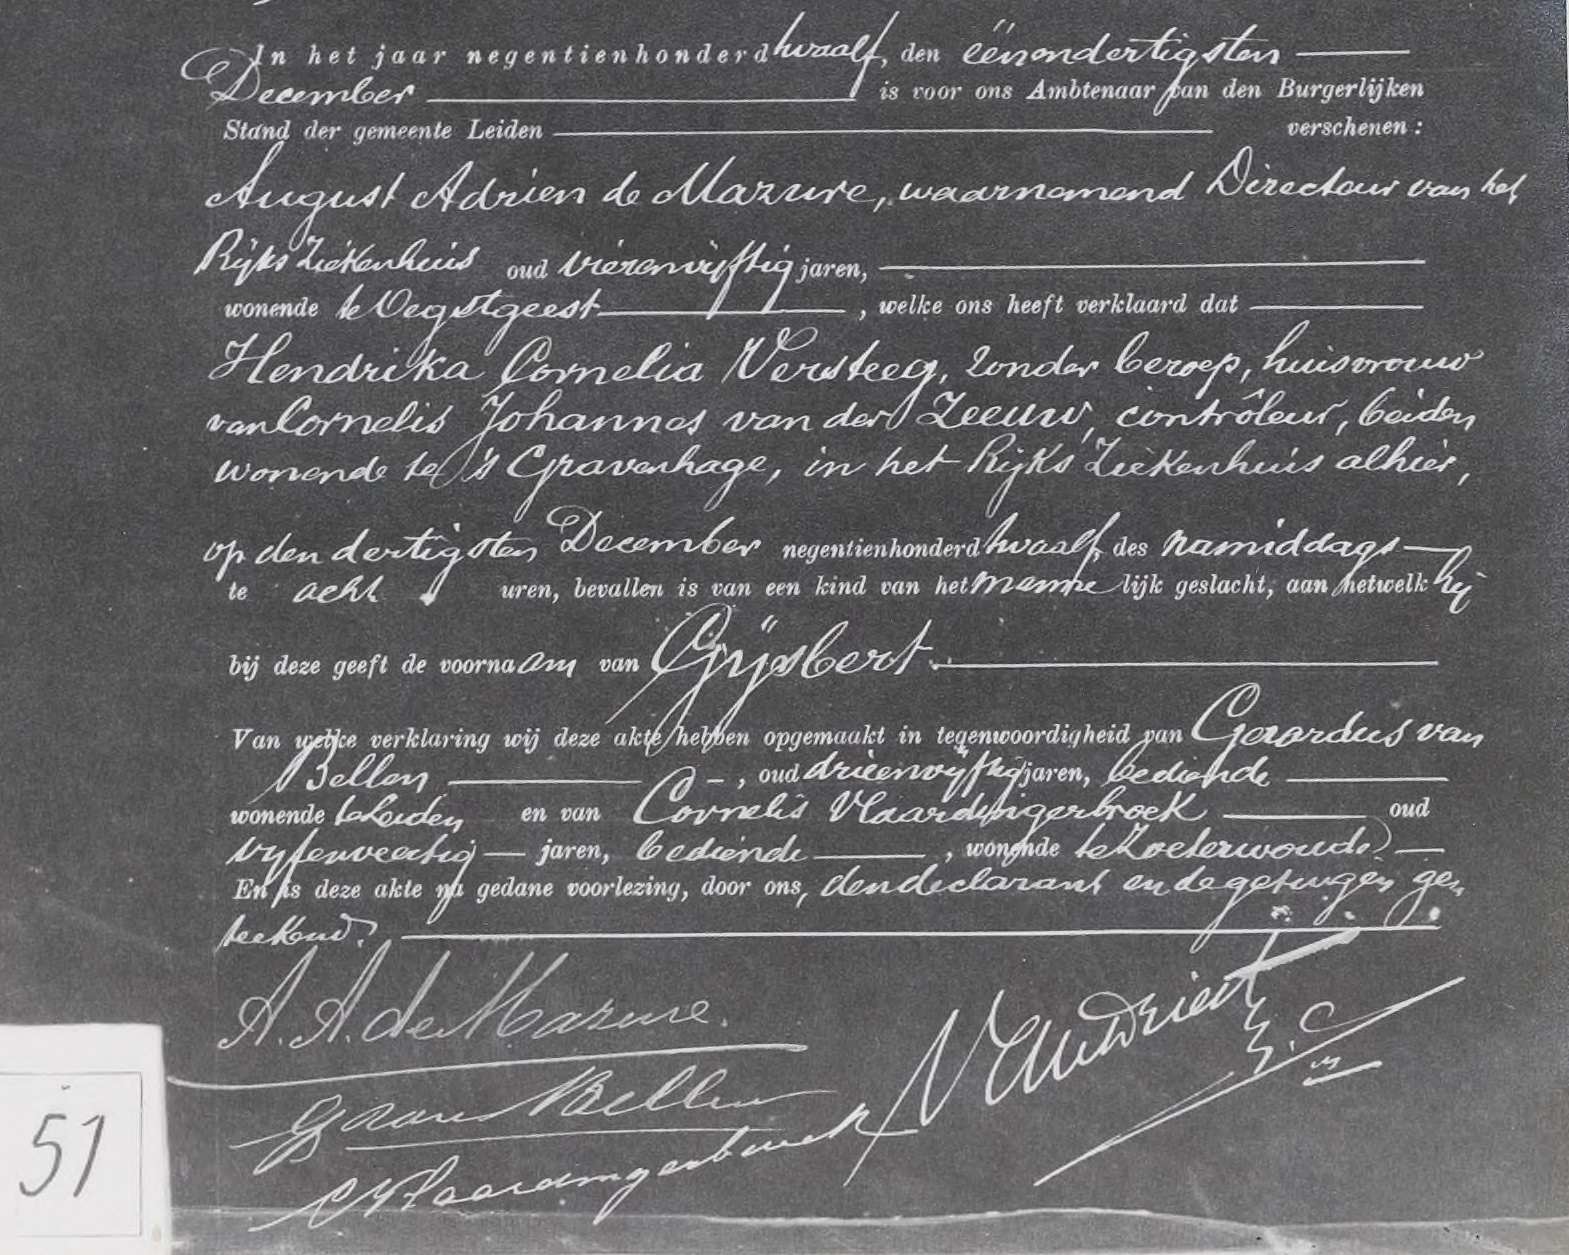 In het jaar negentienhonderd twaalf, den éénendertigsten
December is voor ons Ambtenaar van den Burgerlijken
Stand der gemeente Leiden verschenen:
August Adrien de Mazure, waarnemend Directeur van het
Rijks Ziekenhuis oud vierenvijftig jaren,
wonende te Oegstgeest, welke ons heeft verklaard dat
Hendrika Cornelia Versteeg, zonder beroep, huisvrouw
van Cornelis Johannes van der Zeeuw, contrôleur, beiden
wonende te 's Gravenhage, in het Rijks Ziekenhuis alhier,
op den dertigsten December negentienhonderd twaalf, des namiddags
te acht uren, bevallen is van een kind van het mannelijk geslacht, aan hetwelk hij
bij deze geeft de voornaam van Gijsbert.
Van welke verklaring wij deze akte hebben opgemaakt in tegenwoordigheid van Gerardus van
Bellen, oud drieenvijftig jaren, bediende
wonende te Leiden en van Cornelis Vlaardingerbroek oud
vijfenveertig jaren, bediende, wonende te Zoeterwoude
En is deze akte na gedane voorlezing, door ons, den declarant en de getuigen ge
teekend.
A. A. de Mazure.
G van Bellen
C Vlaardingerbroek
51